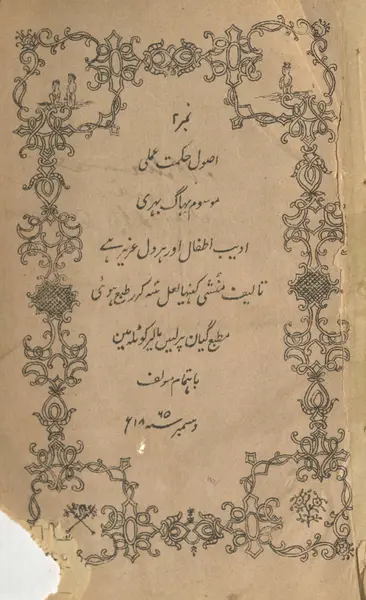 نمبر ۲
اصول حکمت عملی
موسوم بہاگ بہری
ادیب اطفال اور ہر دل عزیز ہے
تالیف منشی کنہیا لعل سہ کرر طبع ہوئی
مطبع گیان پریس مالیر کوٹلہ مین
باہتمام مولف
دسمبر سنہ ۱۸۶۵